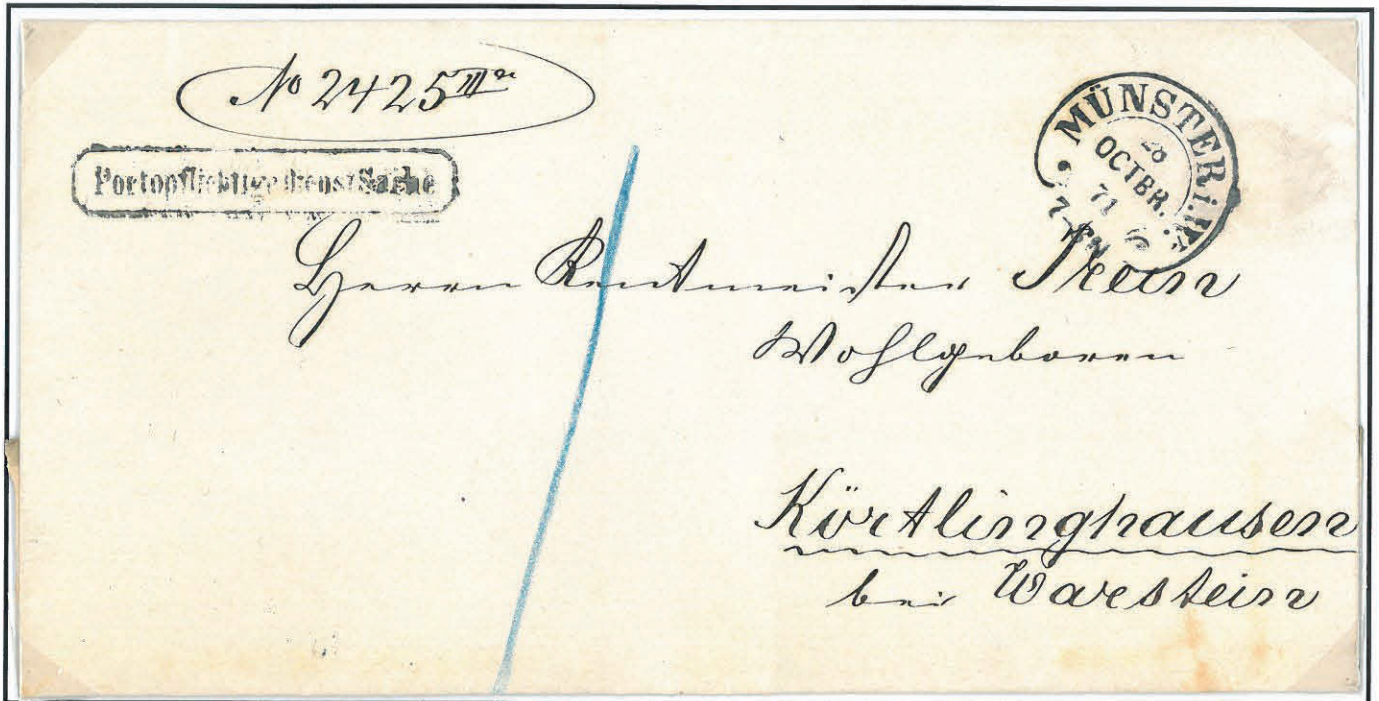 No 2425 IIIa
Portopflichtige Dienst Sache
MÜNSTER i.W.
28
OCTBR.
71
Herrn Rentmeister
Wohlgeboren
Körtlinghausen
bei Warstein